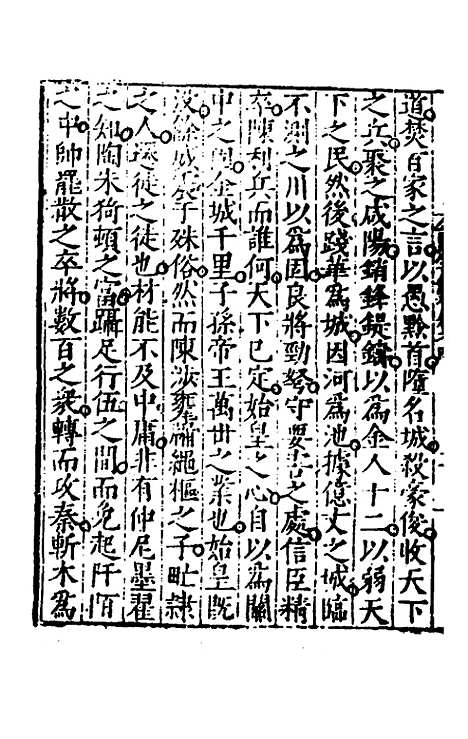 道焚百家之言以愚黔首隳名城殺豪俊收天下
之兵聚之咸陽銷鋒鍉鐻以爲金人十二以弱天
下之民然後踐華爲城因河爲池據億丈之城臨
不測之川以爲固良將勁弩守要害之處信臣精
卒陳利兵而誰何天下已定始皇之心自以爲關
中之固金城千里子孫帝王萬世之業也始皇旣
没餘威震于殊俗然而陳涉甕牖繩樞之子甿隷
之人遷徙之徒也材能不及中庸非有仲尼墨翟
之知陶朱猗頓之富躡足行伍之間而俛起阡陌
之中帥罷散之卒將數百之衆轉而攻秦斬木爲